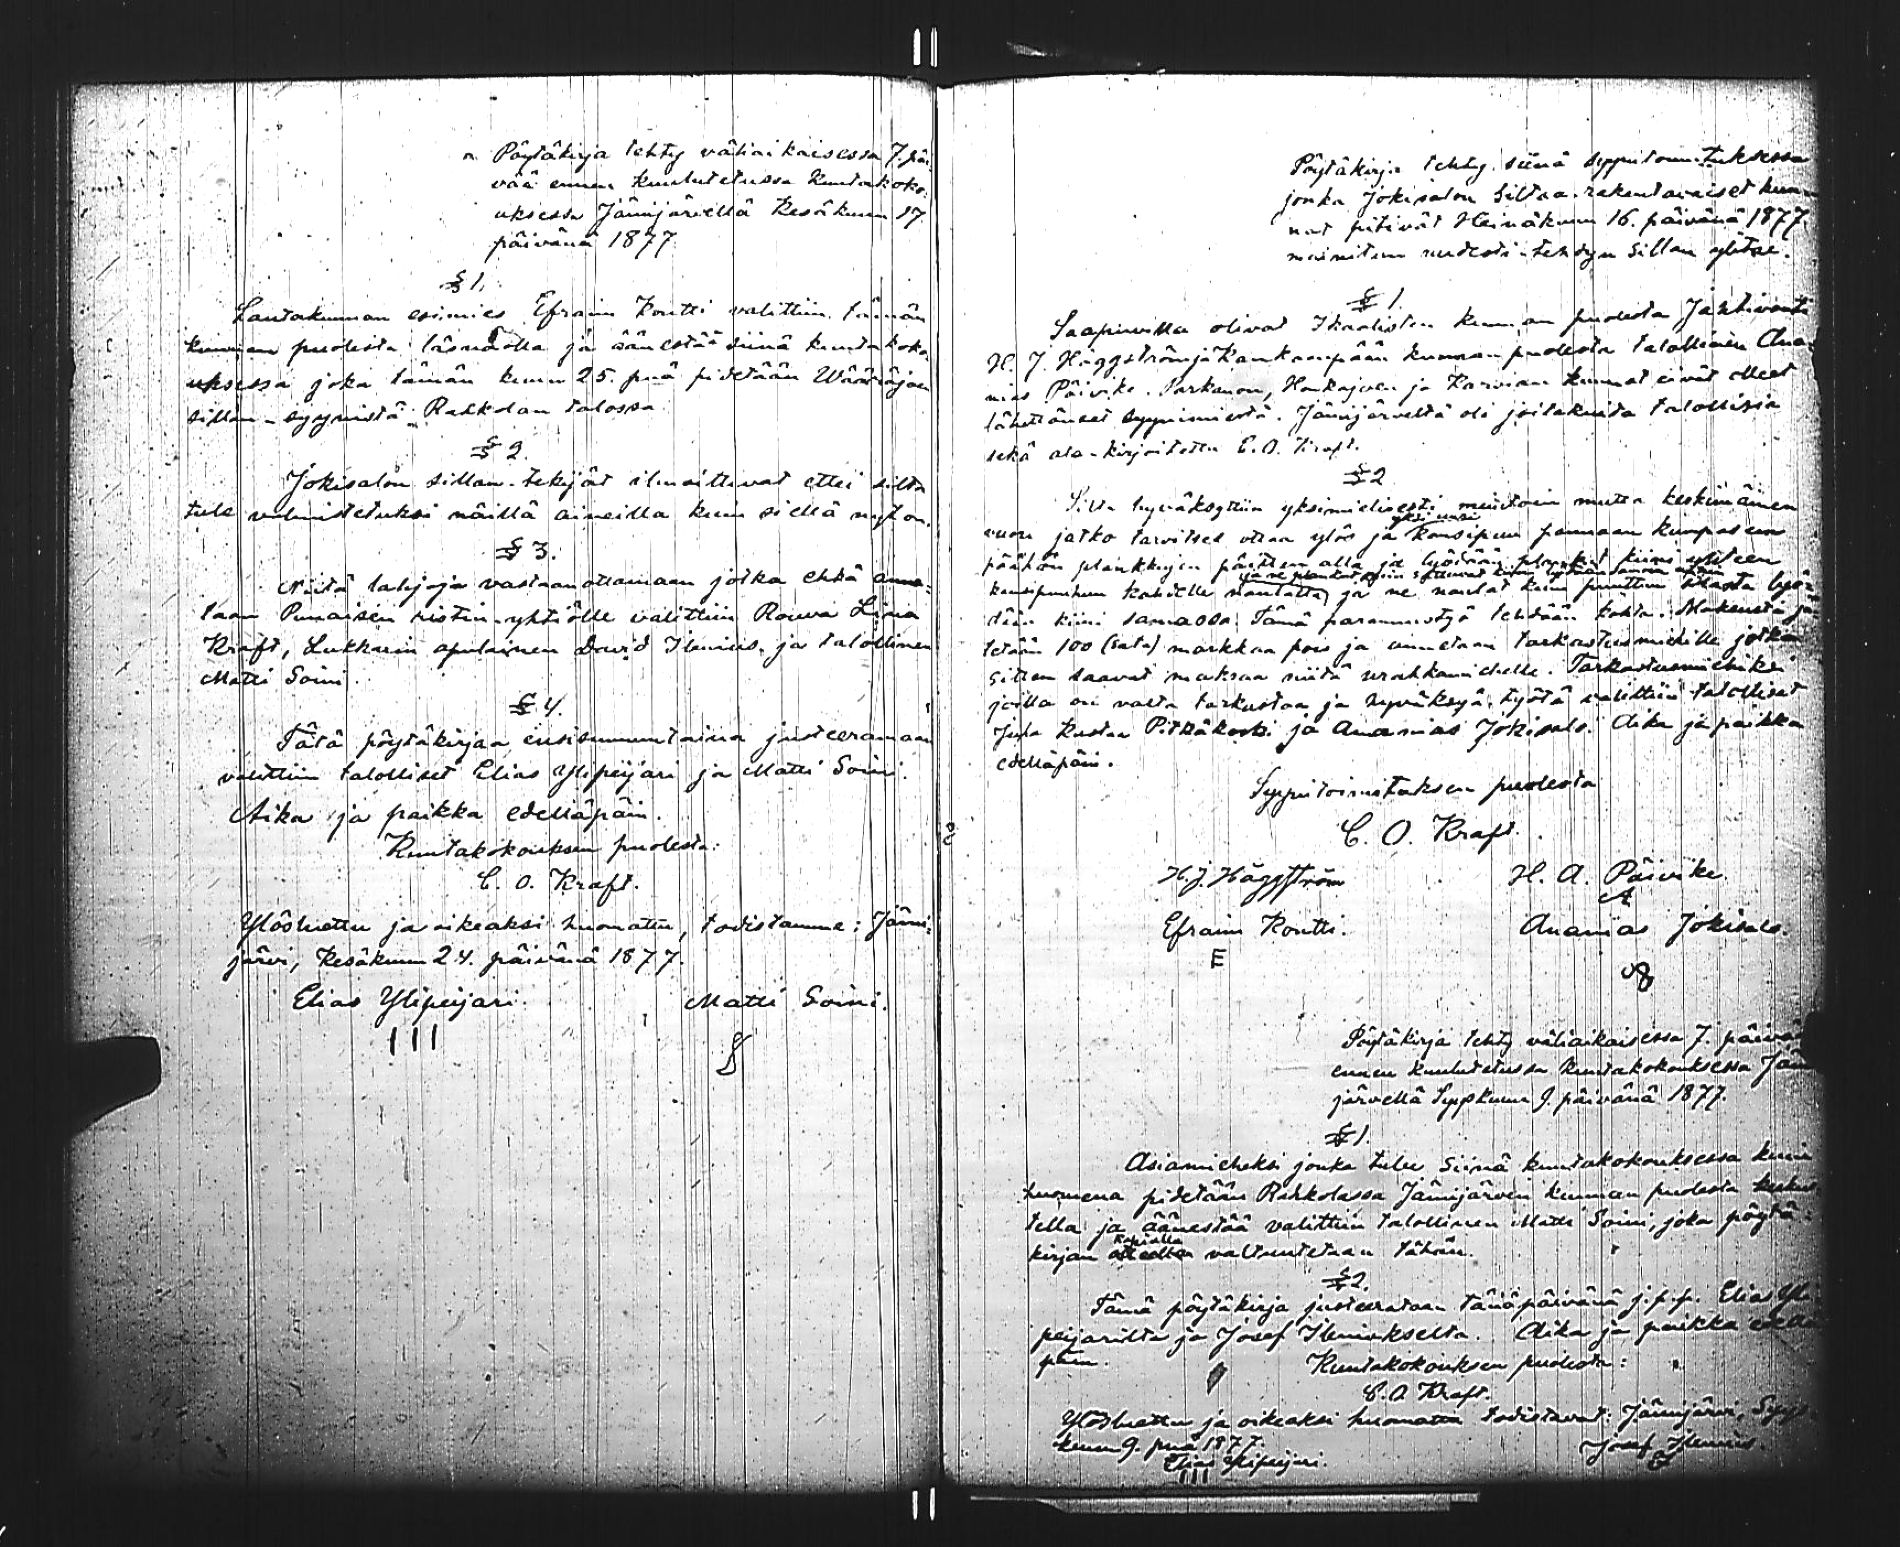 Pöytäkirja tehty väliaikaisessa 7. päi-
vää ennen kuulutetussa Kuntakoko-
uksessa Jämijärvellä Kesäkuun 17.
päivänä 1877
§ 1.
Lautakunnan esimies Efraim Kontti valittiin tämän
kunnan puolesta läsnäolla ja äänestää siinä kuntakoko-
uksessa joka tämän kuun 25. pnä pidetään
sillan-syynistä Rahkolan talossa.
§ 2.
Jokisalon sillan-tekijät ilmoittivat ettei silta
tule valmistetuksi näillä aineilla kuin siellä nyt on.
§ 3.
Niitä lahjoja vastaanottamaan jotka ehkä anne-
taan Punaisen ristin-yhtiölle valittiin Rouva Lina
Kraft, Lukkarin apulainen David Ilmius, ja talollinen
Matti Soini.
§ 4.
Tätä pöytäkirjaa ensisunnuntaina justeeramaan
valittiin talolliset Elias Ylipeijari ja Matti Soini.
Aika ja paikka edelläpäin.
Kuntakokouksen puolesta:
C. O. Kraft.
Ylösluettu ja oikeaksi huomattu, todistamme: Jämi-
järvi, Kesäkuun 24. päivänä 1877.
Elias Ylipeijari. Matti Soini.
III
Pöytäkirja tehty siinä syynitoimituksessa
jonka Jokisalon Siltaa-rakentavaiset kun-
nat pitivät Heinäkuun 16. päivänä 1877
mainitun uudesti-tehdyn Sillan ylitse.
§ 1.
Saapuvilla olivat Ikaalisten kunnan puolesta Jahtivouti
H. J. Häggström ja Kankaanpään kunnan puolesta talollinen Ana-
nias Päivike. Parkanon, Honkajoen ja Karvian kunnat eivät olleet
lähettäneet syynimiestä. Jämijärveltä oli joitakuita talollisia
sekä ala-kirjoitettu C. O. Kraft.
§ 2
Silta hyväksyttiin yksimielisesti muutoin mutta keskimäinen
vuori jatko tarvitsee ottaa ylös ja yksi uusi pannaan kumpaseen
päähän plankkujen päitten alla ja lyödään plankut kiini
kahdelle naulalla ja ne naulat kuin puuttuu lyö-
dään kiini samassa. Tämä parannustyö tehdään kohta. Maksusta jä-
tetään 100 (Sata) markkaa pois ja annetaan tarkastusmiehille jotka
sitten saavat maksaa niitä urakkamiehelle. Tarkastusmiehiksi
joilla on valta tarkastaa ja hyväksyä työtä valittiin talolliset
Juha Kustaa Pitkäkoski ja Ananias Jokisalo. Aika ja paikka
edelläpäin.
Syynitoimituksen puolesta
C. O. Kraft.
H. J. Häggström H. A. Päivike.
A
Efraim Kontti. Ananias Jokisalo.
E
Pöytäkirja tehty väliaikaisessa 7. päivää
ennen kuulutetussa kuntakokouksessa Jämi-
järvellä Syyskuun 9. päivänä 1877.
§ 1.
Asiamieheksi jonka tulee Siinä kuntakokouksessa kuin
huomena pidetään Rahkolassa Jämijärven kunnan puolesta keskus-
tella ja äänestää valittiin talollinen Matti Soini, joka pöytä-
kirjan kopialla valtuutetaan tähän.
§ 2.
Tämä pöytäkirja justeerataan tänäpäivänä j.p.p. Elias Yli-
peijarilta ja Josef Ilmiukselta. Aika ja paikka edellä
päin.
Kuntakokouksen puolesta:
C. O. Kraft.
Ylösluettu ja oikeaksi huomattu todistavat: Jämijärvi, Syys-
kuun 9. pnä 1877.
Elias Ylipeijari. Josef Ilmius.
III